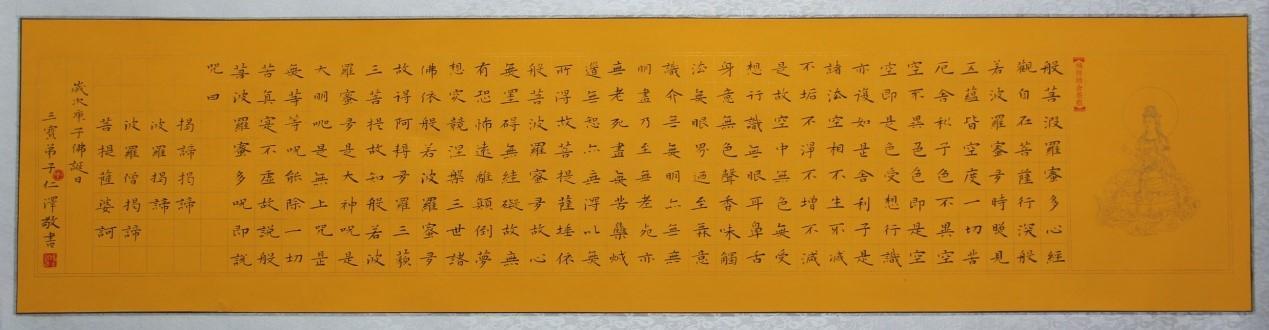 般菩波羅蜜多心經
觀自在菩薩行深般
若波羅蜜多時照見
五蘊皆空度一切苦
厄舍利子色不異空
空不異色色即是空
空即是色受想行識
亦復如是舍利子是
諸法空相不生不滅
不垢不淨不增不減
是故空中無色無受
想行識無眼耳鼻舌
身意無色聲香味觸
法無眼界迺至無意
識介無無明亦無無
明盡乃至無老死亦
無老死盡無苦集滅
道無智亦無得以無
所得故菩提薩埵依
般菩波羅蜜多故心
無罣碍無絓礙故無
有恐怖遠離顛倒夢
想究竟涅槃三世諸
佛依般若波羅蜜多
故得阿耨多羅三藐
三菩提故知般若波
羅蜜多是大神呪是
大明呪是無上呪是
無等等呪能除一切
苦真實不虛故説般
菩波羅蜜多呪即説
呪曰
揭諦揭諦
波羅揭諦
波羅僧揭諦
菩提薩婆訶
歲次庚子佛誕日
三寶弟子仁澤敬書